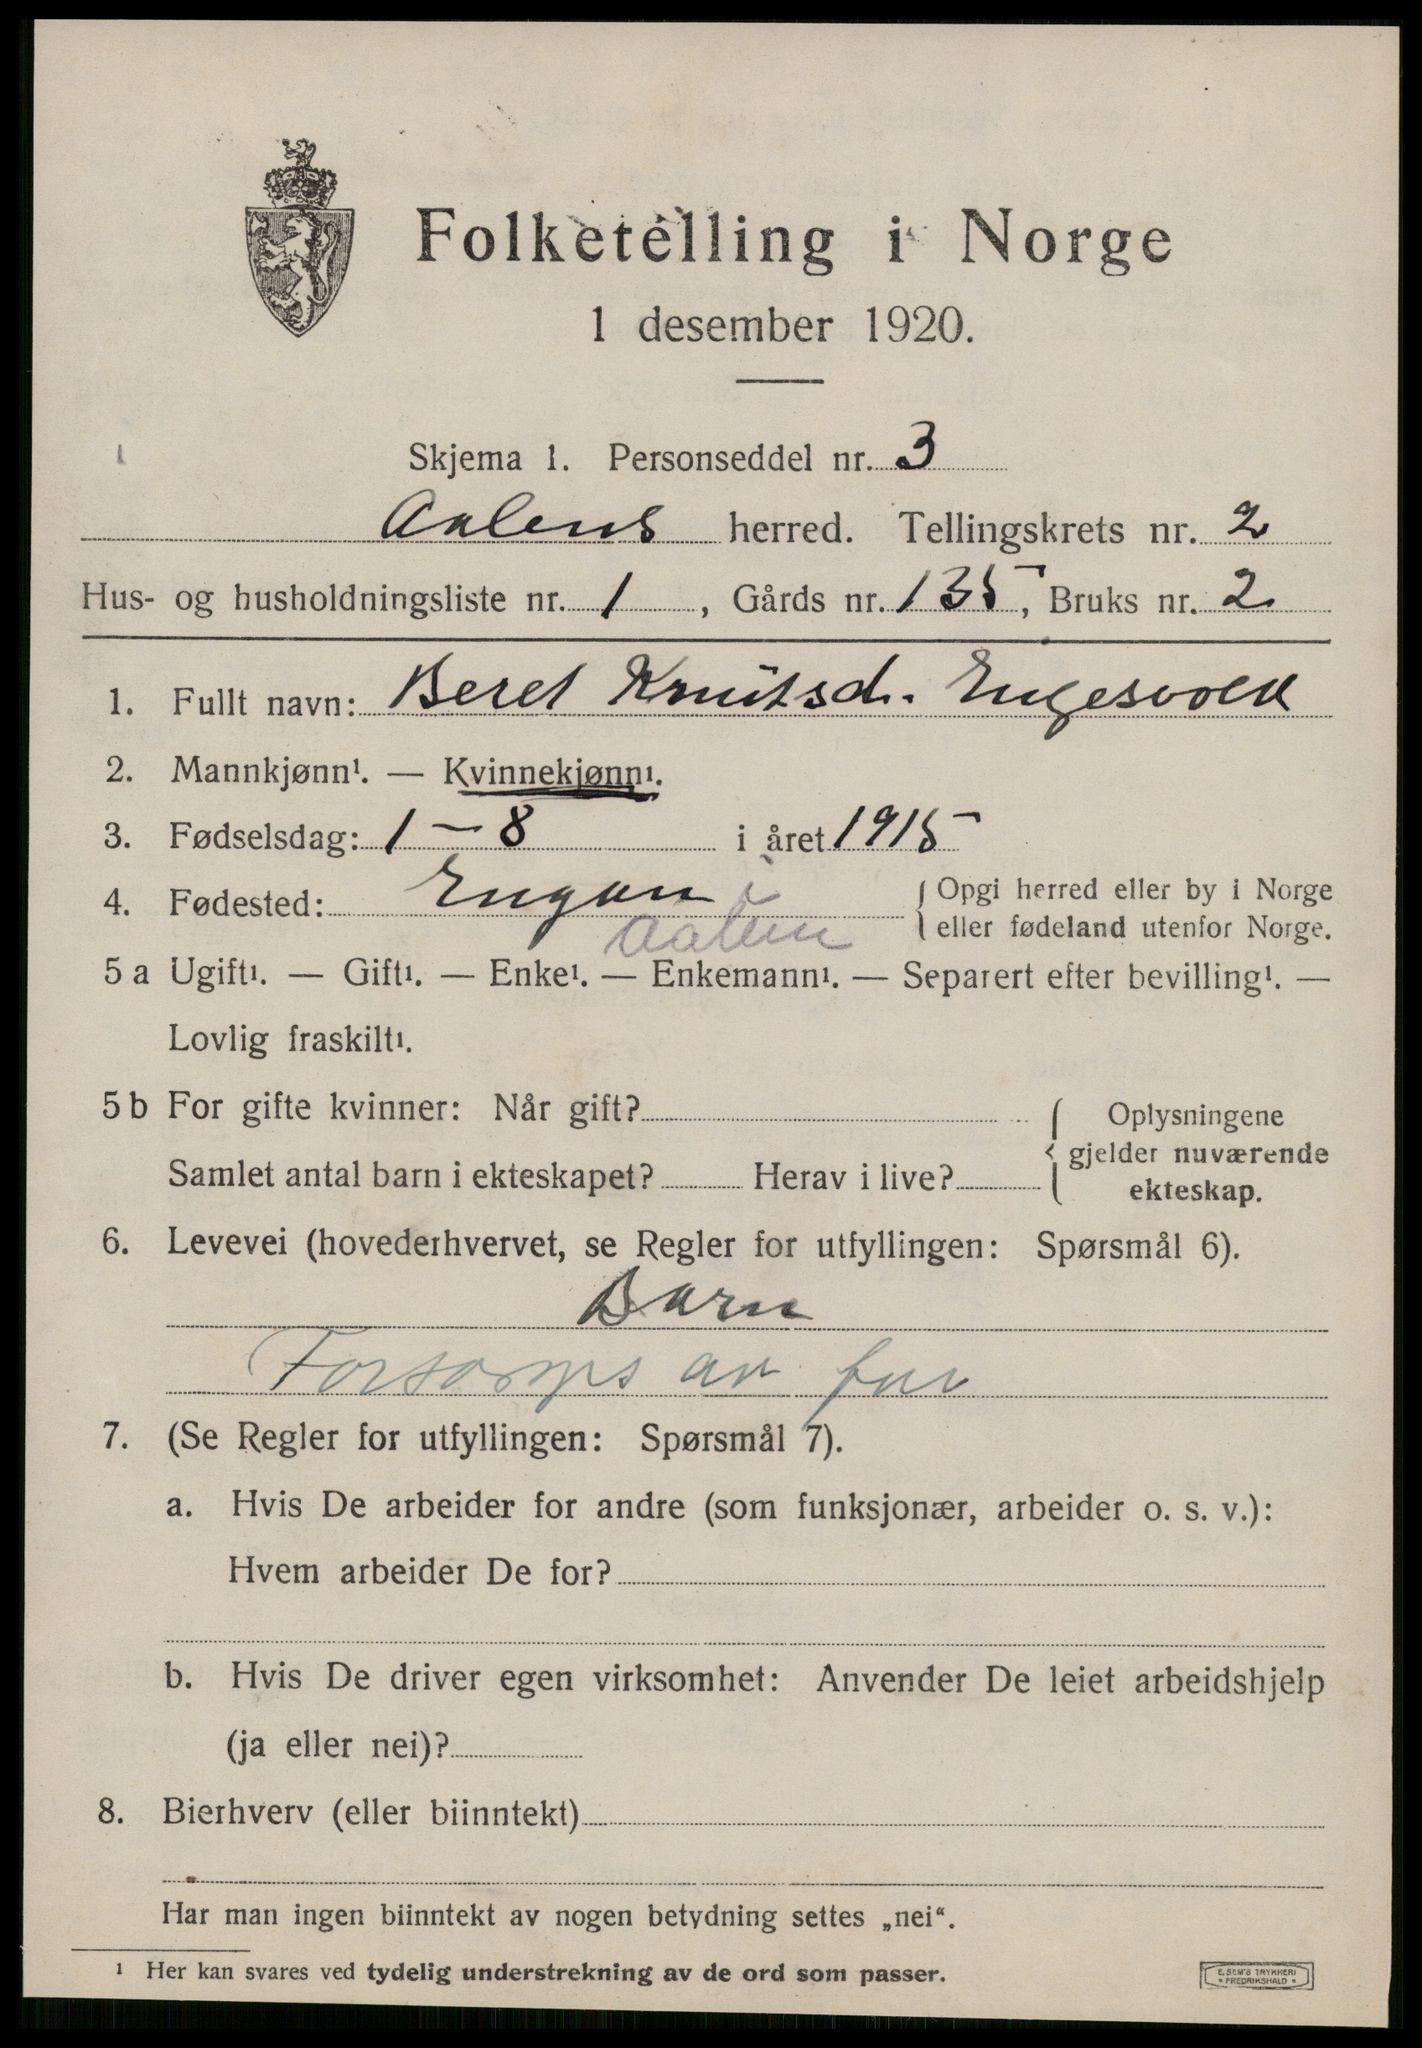 Folketelling i Norge
1 desember 1920.
Skjema 1. Personseddel nr. 3
Aalens herred. Tellingskrets nr. 2
Hus- og husholdningsliste nr. 1, Gårds nr. 135, Bruks nr. 2
1. Fullt navn: Beret Knutsd. Engesvold
2. Mannkjønn¹. — Kvinnekjønn¹.
3. Fødselsdag: 1 - 8 i året 1915
4. Fødested: Engan i { Opgi herred eller by i Norge
Aalen eller fødeland utenfor Norge.
5 a Ugift¹. — Gift¹. — Enke¹. — Enkemann¹. — Separert efter bevilling¹. —
Lovlig fraskilt¹.
5 b For gifte kvinner: Når gift? { Oplysningene
gjelder nuværende
Samlet antal barn i ekteskapet? Herav i live? ekteskap.
6. Levevei (hovederhvervet, se Regler for utfyllingen: Spørsmål 6).
Barn
Forsørges av far
7. (Se Regler for utfyllingen: Spørsmål 7).
a. Hvis De arbeider for andre (som funksjonær, arbeider o. s. v.):
Hvem arbeider De for?
b. Hvis De driver egen virksomhet: Anvender De leiet arbeidshjelp
(ja eller nei)?
8. Bierhverv (eller biinntekt)
Har man ingen biinntekt av nogen betydning settes „nei“.
¹ Her kan svares ved tydelig understrekning av de ord som passer.
E. SEM'S TRYKKERI
• FREDRIKSHALD •